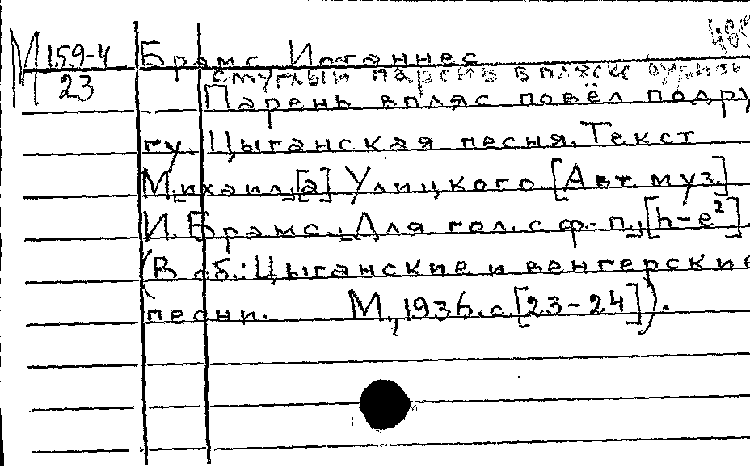 М 159-4 Брамс Иоганнес
23 смуглый парень в пляске
Парень в пляс повёл подру
гу. Цыганская песня. Текст
Михаил[а] Улицкого [Авт. муз.]
И. Брамс. Для гол. с ф-п., [h-e²].
(В сб.: Цыганские и венгерские
песни. М., 1936. с [23-24]).